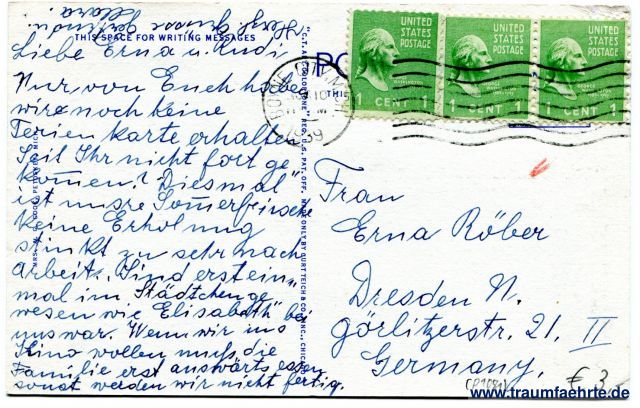 Liebe Erna u. Rudi
THIS SPACE FOR WRITING MESSAGES
Nur von Euch habe
wir noch keine
Ferienkarte erhalten
Seit Ihr nicht fort ge
komen? Diesmal
ist unsre Somerfrische
keine Erholung
stinkt zu sehr nach
Arbeit. Sind erst ein
mal im Städtchen ge
wesen wie Elisabeth bei
uns war. Wenn wir ins
Kino wollen muss die
Familie erst auswärts essen
sonst werden wir nicht fertig.
Herzl. Grüsse
Klara
UNITED STATES POSTAGE
1 CENT 1
UNITED STATES POSTAGE
1 CENT 1
UNITED STATES POSTAGE
1 CENT 1
1939
PO
THI
"C.T. ART-COLORTONE" REG. U.S. PAT. OFF. MADE ONLY BY CURT TEICH & CO., INC., CHICAGO
Frau
Erna Röber
Dresden N.
Görlitzerstr. 21. II
Germany.
€ 3,-
www.traumfaehrte.de